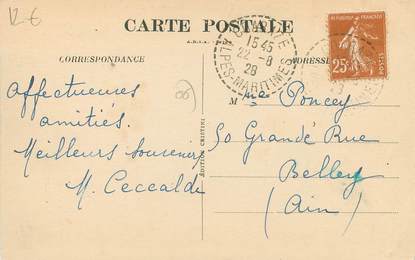 12 €
CARTE POSTALE
A.D.I.A. NICE
CORRESPONDANCE
ADRESSE
15 45
22 - 8
28
ALPES-MARITIMES
REPUBLIQUE FRANÇAISE
25c
POSTES
8
Affectueuses
amitiés.
Meilleurs souvenirs
M. Ceccaldi
EDITION CRISTINI
Mme Poncey
50 Grande Rue
Belley
(Ain)